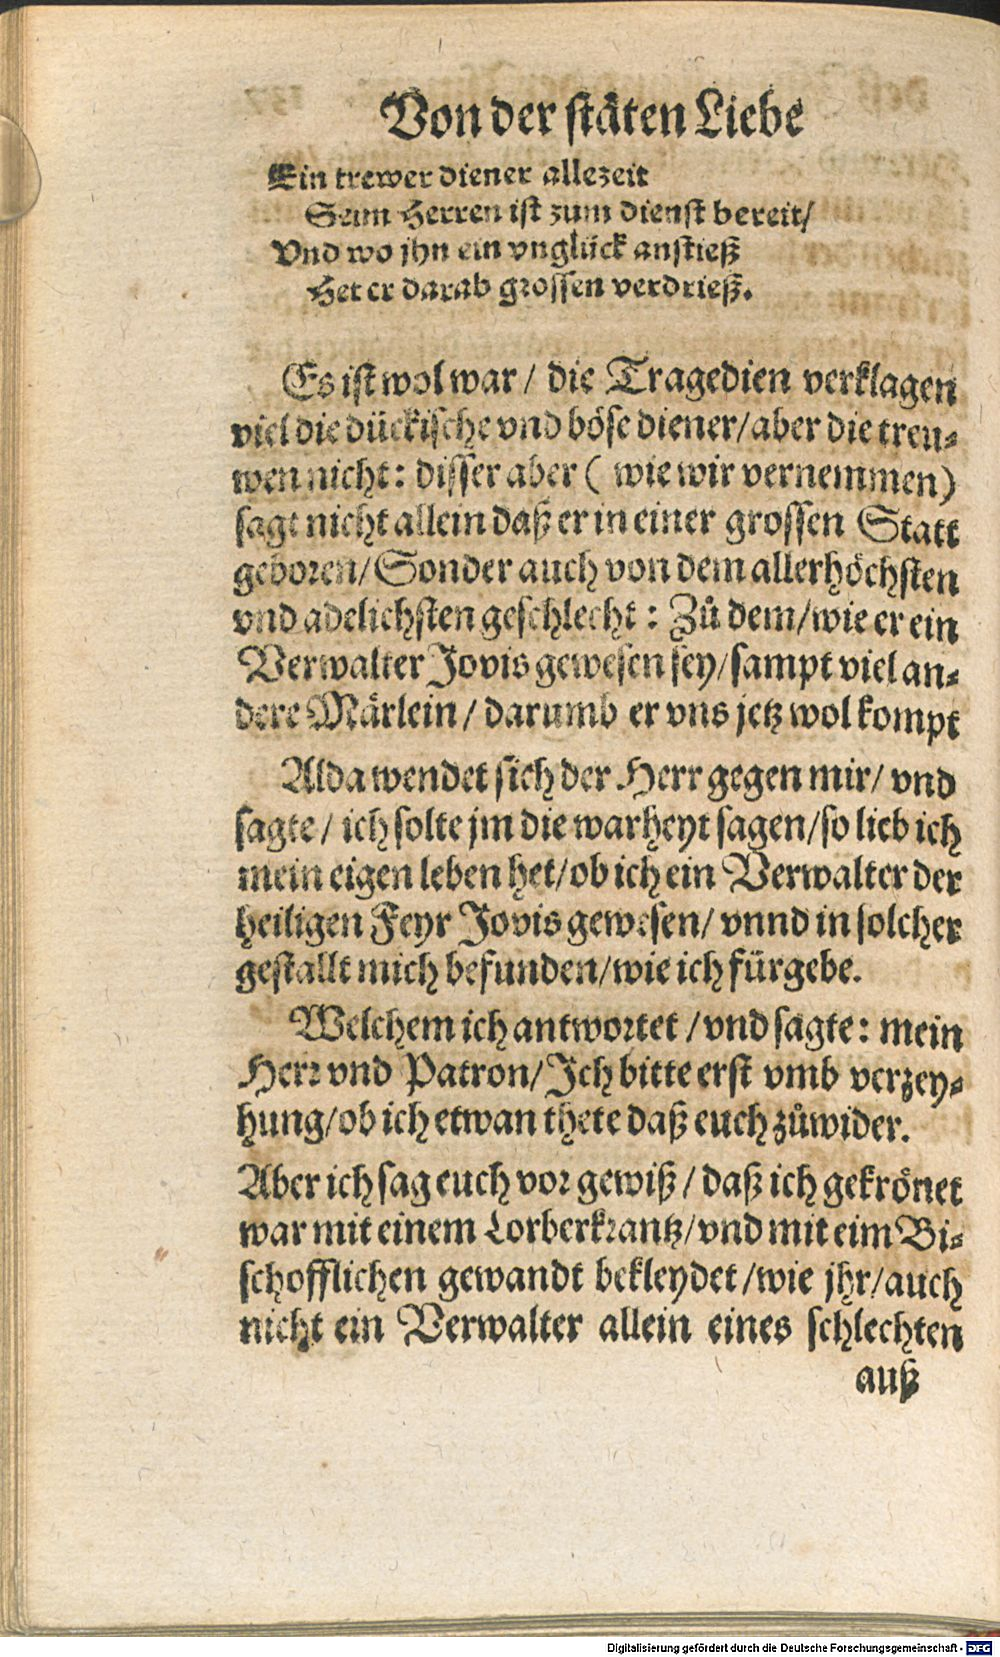 Von der stäten Liebe
Ein trewer diener allezeit
Seim Herren ist zum dienst bereit/
Vnd wo jhn ein vnglück anstieß
Het er darab grossen verdrieß.
Es ist wol war / die Tragedien verklagen
viel die dückische vnd böse diener/aber die treu-
wen nicht: disser aber ( wie wir vernemmen)
sagt nicht allein daß er in einer grossen Statt
geboren/Sonder auch von dem allerhöchsten
vnd adelichsten geschlecht: Zů dem/wie er ein
Verwalter Jovis gewesen sey/sampt viel an-
dere Märlein / darumb er vns jetz wol kompt
Alda wendet sich der Herr gegen mir/ vnd
sagte/ ich solte jm die warheyt sagen/so lieb ich
mein eigen leben het/ob ich ein Verwalter der
heiligen Feyr Jovis gewesen/ vnnd in solcher
gestallt mich befunden/wie ich fürgebe.
Welchem ich antwortet /vnd sagte: mein
Herr vnd Patron/Jch bitte erst vmb verzey-
hung/ob ich etwan thete daß euch zůwider.
Aber ich sag euch vor gewiß / daß ich gekrönet
war mit einem Lorberkrantz/vnd mit eim Bi-
schofflichen gewandt bekleydet/wie jhr/auch
nicht ein Verwalter allein eines schlechten
auß
Digitalisierung gefördert durch die Deutsche Forschungsgemeinschaft - DFG